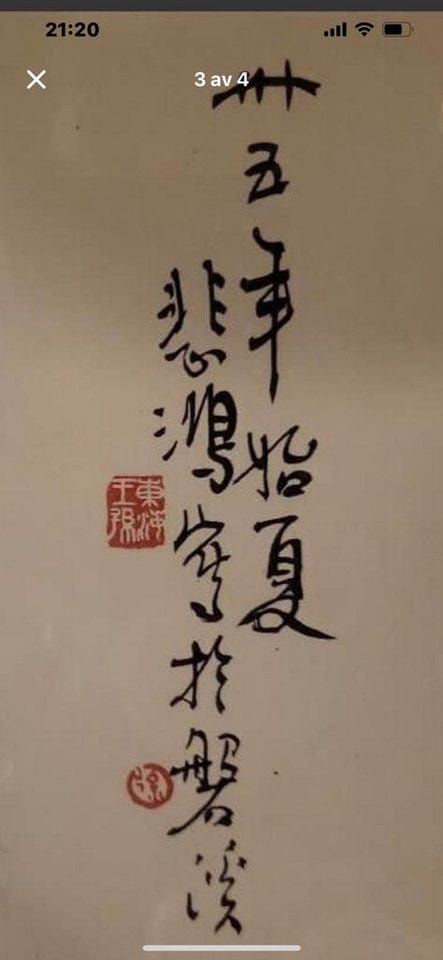 21:20
3 av 4
卅五年始夏
悲鴻寫於磐溪
東海王孫